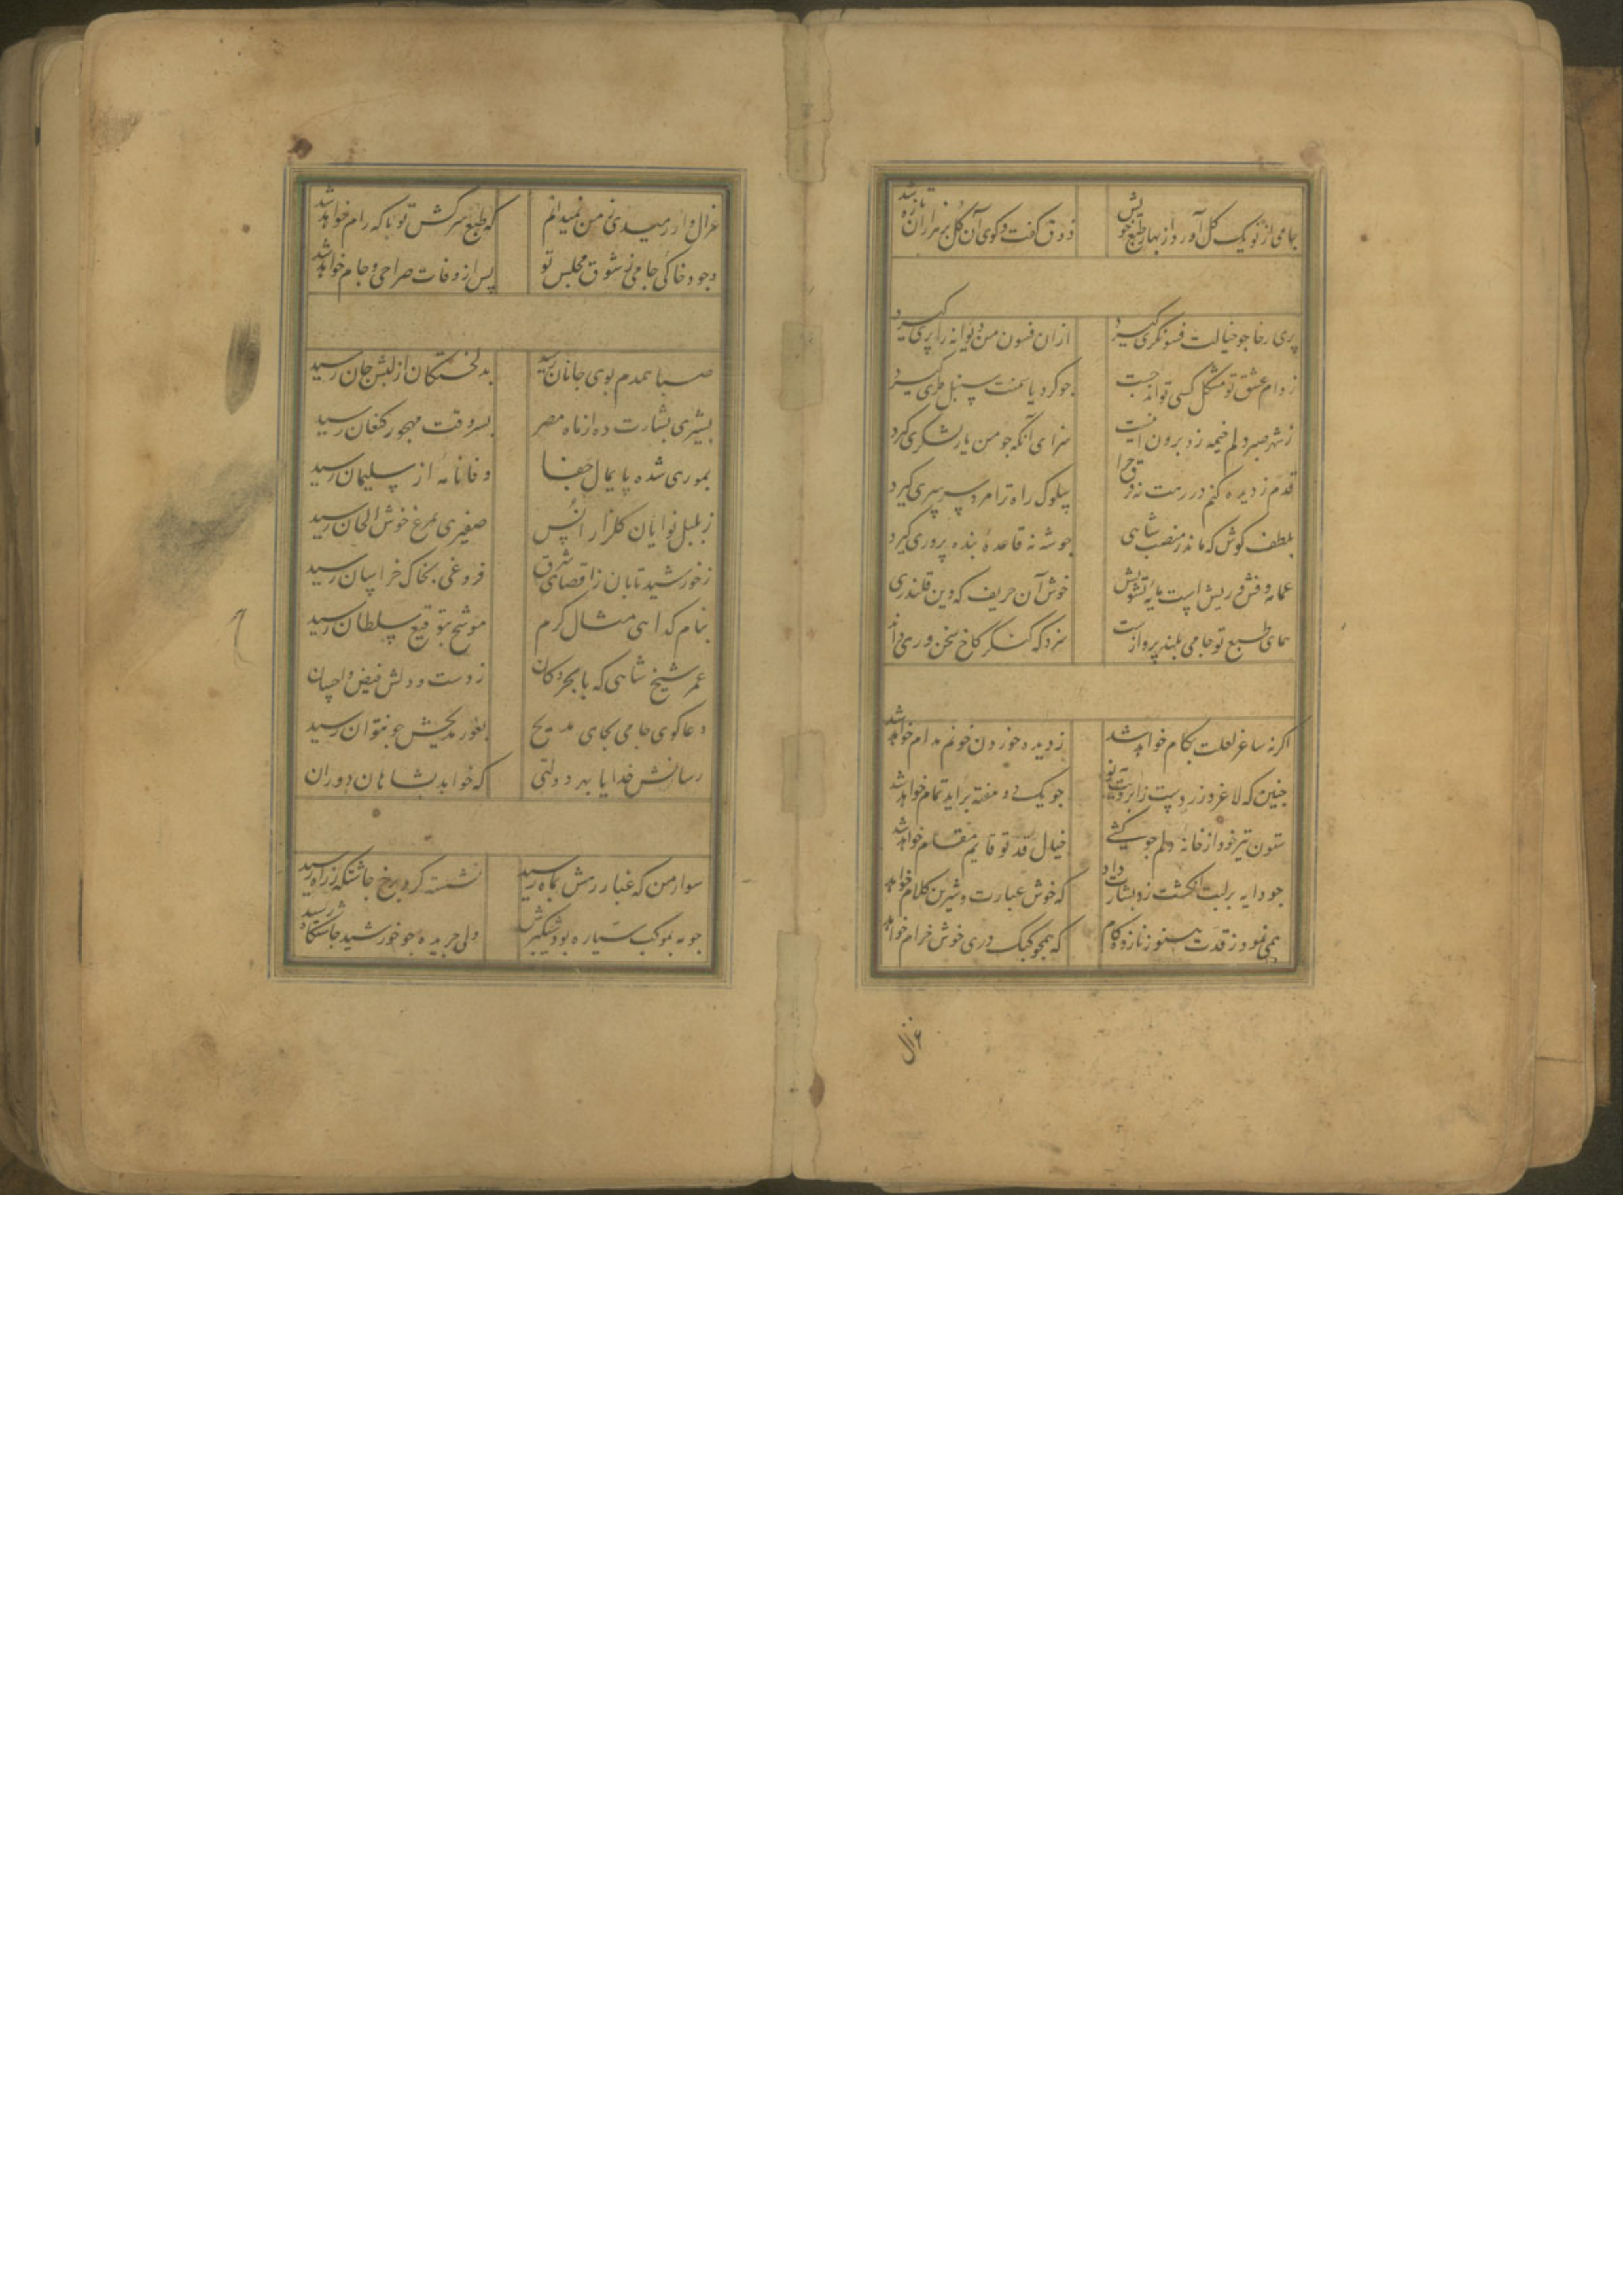 جامی از نو یک گل آورد از بهار طبع خویش ذوق گفت و گوی آن گل بر هزاران تازه شد
پری رخا جو خیالت فسونگری گیرد ازان فسون من دیوانه را پری گیرد
ز دام عشق تو مشکل کسی تواند جست جو گرد یاسمنت سنبل طری گیرد
ز شهر صبر دلم خیمه زد برون اینست سزای آنکه جو من یار لشکری گیرد
قدم ز دیده کنم در رهت نه فرق جرا سلوک راه ترا مرد سرسری گیرد
بلطف کوش که ماند ز منصب شاهی جو شه نه قاعدهٔ بنده پروری گیرد
عمامه و فش و ریش است مایه تشویش خوش آن حریف که دین قلندری
همای طبع تو جامی بلند پروازست سزد که کنگر کاخ سخن وری داند
اگر نه ساغر لعلت بکام خواهد شد ز دیده خوردن خونم مدام خواهد شد
جنین که لاغر و زردست ز ابرویت نو جو یک دو هفته براید تمام خواهد شد
ستون تیر خود از خانه دلم جو کشی خیال قد تو قایم مقام خواهد شد
جو دایه بر لبت انگشت زد بشارت داد که خوش عبارت و شیرین کلام خواهد
همی نمود ز قدت هنوز نازده گام که همجو کبک دری خوش خرام خواهد
غزال
غزال وار رمیدی ز من نمیدانم که طبع سرکش تو با که رام خواهد شد
وجود خاکی جامی ز شوق مجلس تو پس از وفات صراحی و جام خواهد شد
صبا همدم بوی جانان رسید بدلخستگان از لبش جان رسید
بشیری بشارت ده از ماه مصر بسر وقت مهجور کنعان رسید
بموری شده پایمال جفا وفانامه از سلیمان رسید
ز بلبل نوایان گلزار انس صفیری بمرغ خوش الحان رسید
ز خورشید تابان ز اقصای شرق فروغی بخاک خراسان رسید
بنام گدا هی مثال کرم موشح بتوقیع سلطان رسید
عمر شیخ شاهی که با بحر و کان ز دست و دلش فیض و احسان
دعاگوی جامی بجای مدیح بغور مدیحش جو نتوان رسید
رسانش خدایا بهر دولتی که خواهد بشاهان دوران
سوار من که غبار رهش بماه رسید نشسته گرد برخ جاشتگه ز راه رسید
جو مه بموکب سیاره بود شبگیرش ولی جریده جو خورشید جاشتگاه رسید